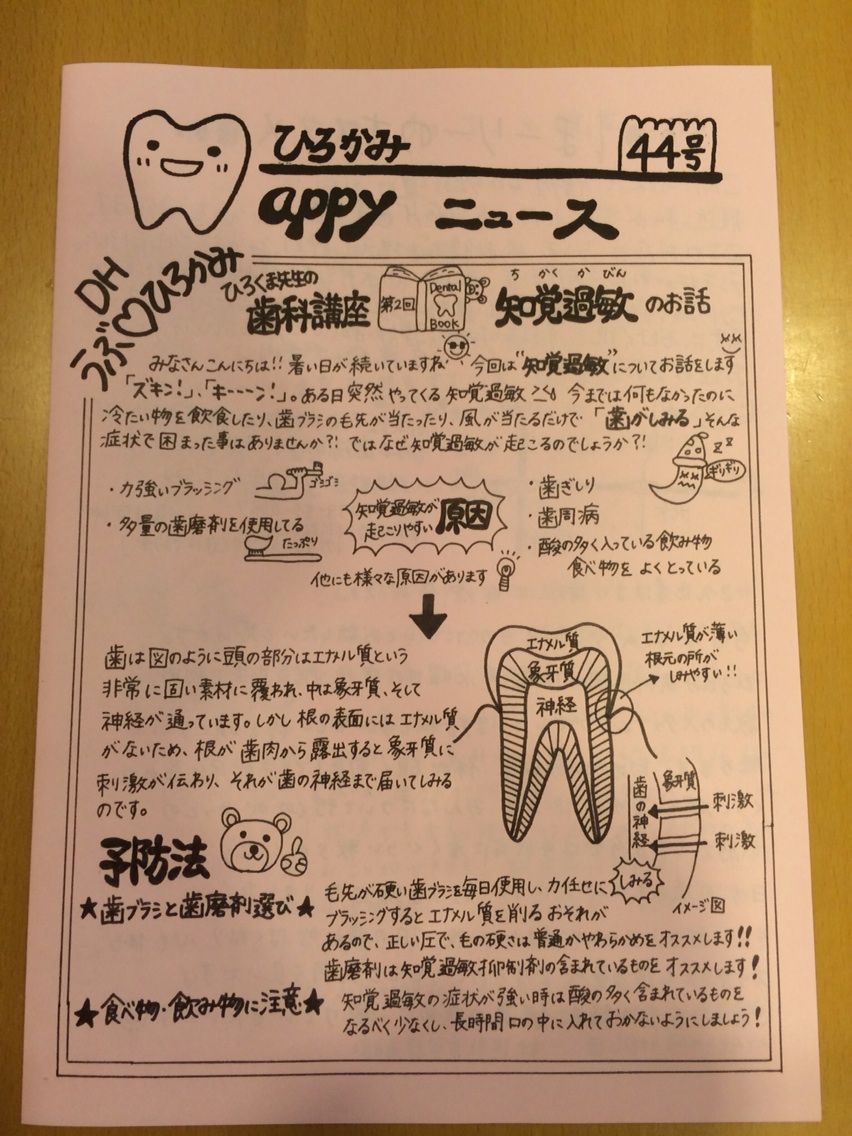 ひろかみ
44号
appy ニュース
DH
うぶ♡ひろかみ
ひろくま先生の
歯科講座
第2回
Dental
BOOK
ちかくかびん
知覚過敏のお話
みなさんこんにちは!! 暑い日が続いていますね 今回は"知覚過敏"についてお話をします
「ズキン!」、「キーーーン!」。ある日突然やってくる知覚過敏 今までは何もなかったのに
冷たい物を飲食したり、歯ブラシの毛先が当たったり、風が当たるだけで「歯がしみる」そんな
症状で困まった事はありませんか?! ではなぜ知覚過敏が起こるのでしょうか?!
・力強いブラッシング
ゴシゴシ
・多量の歯磨剤を使用してる
たっぷり
知覚過敏が
起こりやすい 原因
・歯ぎしり
zz
ギリギリ
・歯周病
・酸の多く入っている飲み物
食べ物をよくとっている
他にも様々な原因があります
歯は図のように頭の部分はエナメル質という
非常に固い素材に覆われ、中は象牙質、そして
神経が通っています。しかし根の表面にはエナメル質
がないため、根が歯肉から露出すると象牙質に
刺激が伝わり、それが歯の神経まで届いてしみる
のです。
エナメル質
象牙質
神経
エナメル質が薄い
根元の所が
しみやすい!!
歯の神経
象牙質
刺激
刺激
しみる
イメージ図
予防法
★歯ブラシと歯磨剤選び★
毛先が硬い歯ブラシを毎日使用し、力任せに
ブラッシングするとエナメル質を削るおそれが
あるので、正しい圧で、毛の硬さは普通かやわらかめをオススメします!!
歯磨剤は知覚過敏抑制剤の含まれているものをオススメします!
★食べ物・飲み物に注意★
知覚過敏の症状が強い時は酸の多く含まれているものを
なるべく少なくし、長時間口の中に入れておかないようにしましょう!